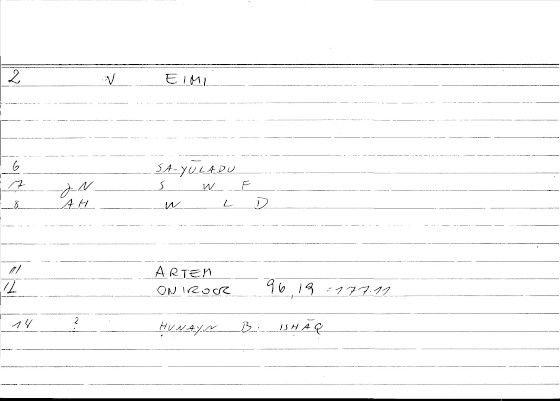 2 V EIMI
6 SA-YŪLADU
7 gN S W F
8 AH W L D
11 ARTEM
12 ONIROCR 96,19 = 177.11
14 ? ḤUNAYN B. ISḤĀQ